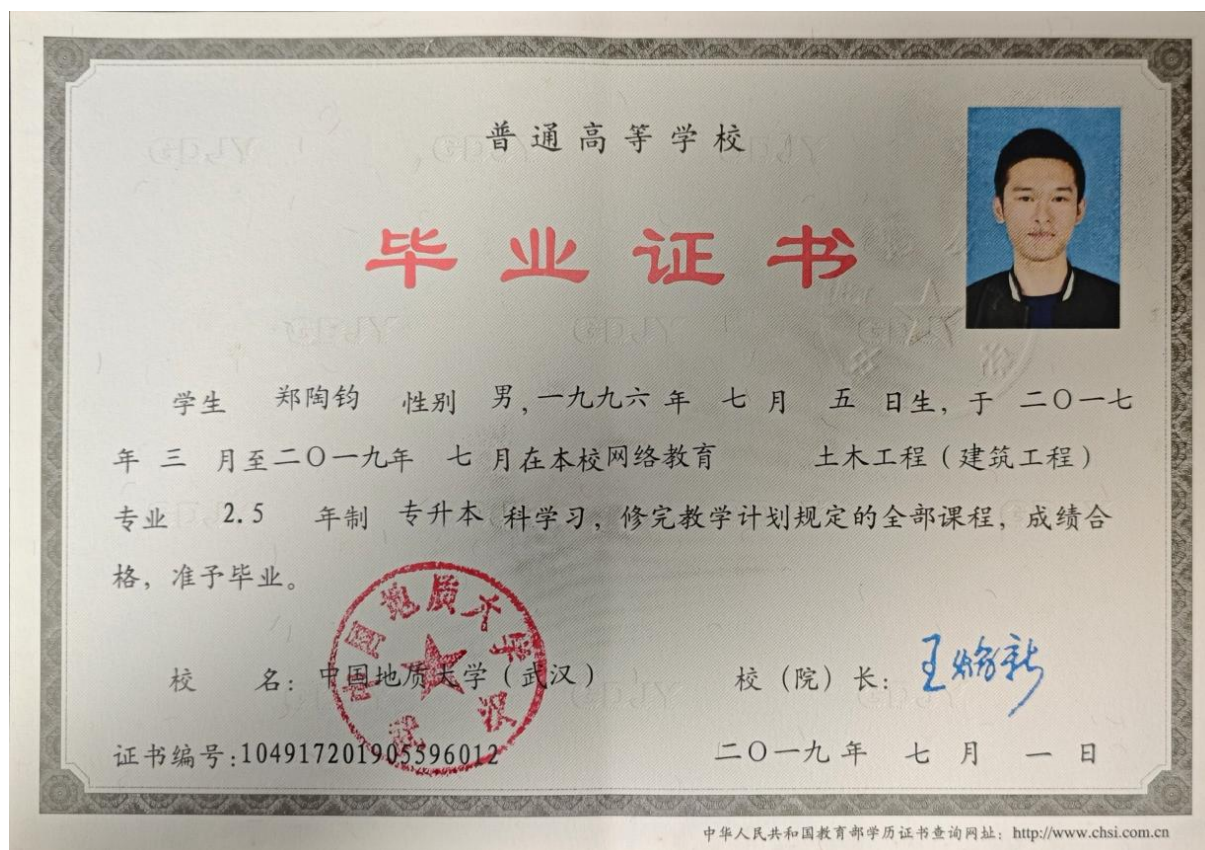 普通高等学校
毕业证书
学生 郑陶钧 性别 男,一九九六年 七月 五日生,于 二〇一七
年 三 月至二〇一九年 七月在本校网络教育 土木工程(建筑工程)
专业 2.5 年制 专升本 科学习,修完教学计划规定的全部课程,成绩合
格,准予毕业。
中国地质大学
武汉
校 名:中国地质大学(武汉) 校(院)长:王焰新
证书编号:104917201905596012 二〇一九年 七月 一日
中华人民共和国教育部学历证书查询网址:http://www.chsi.com.cn